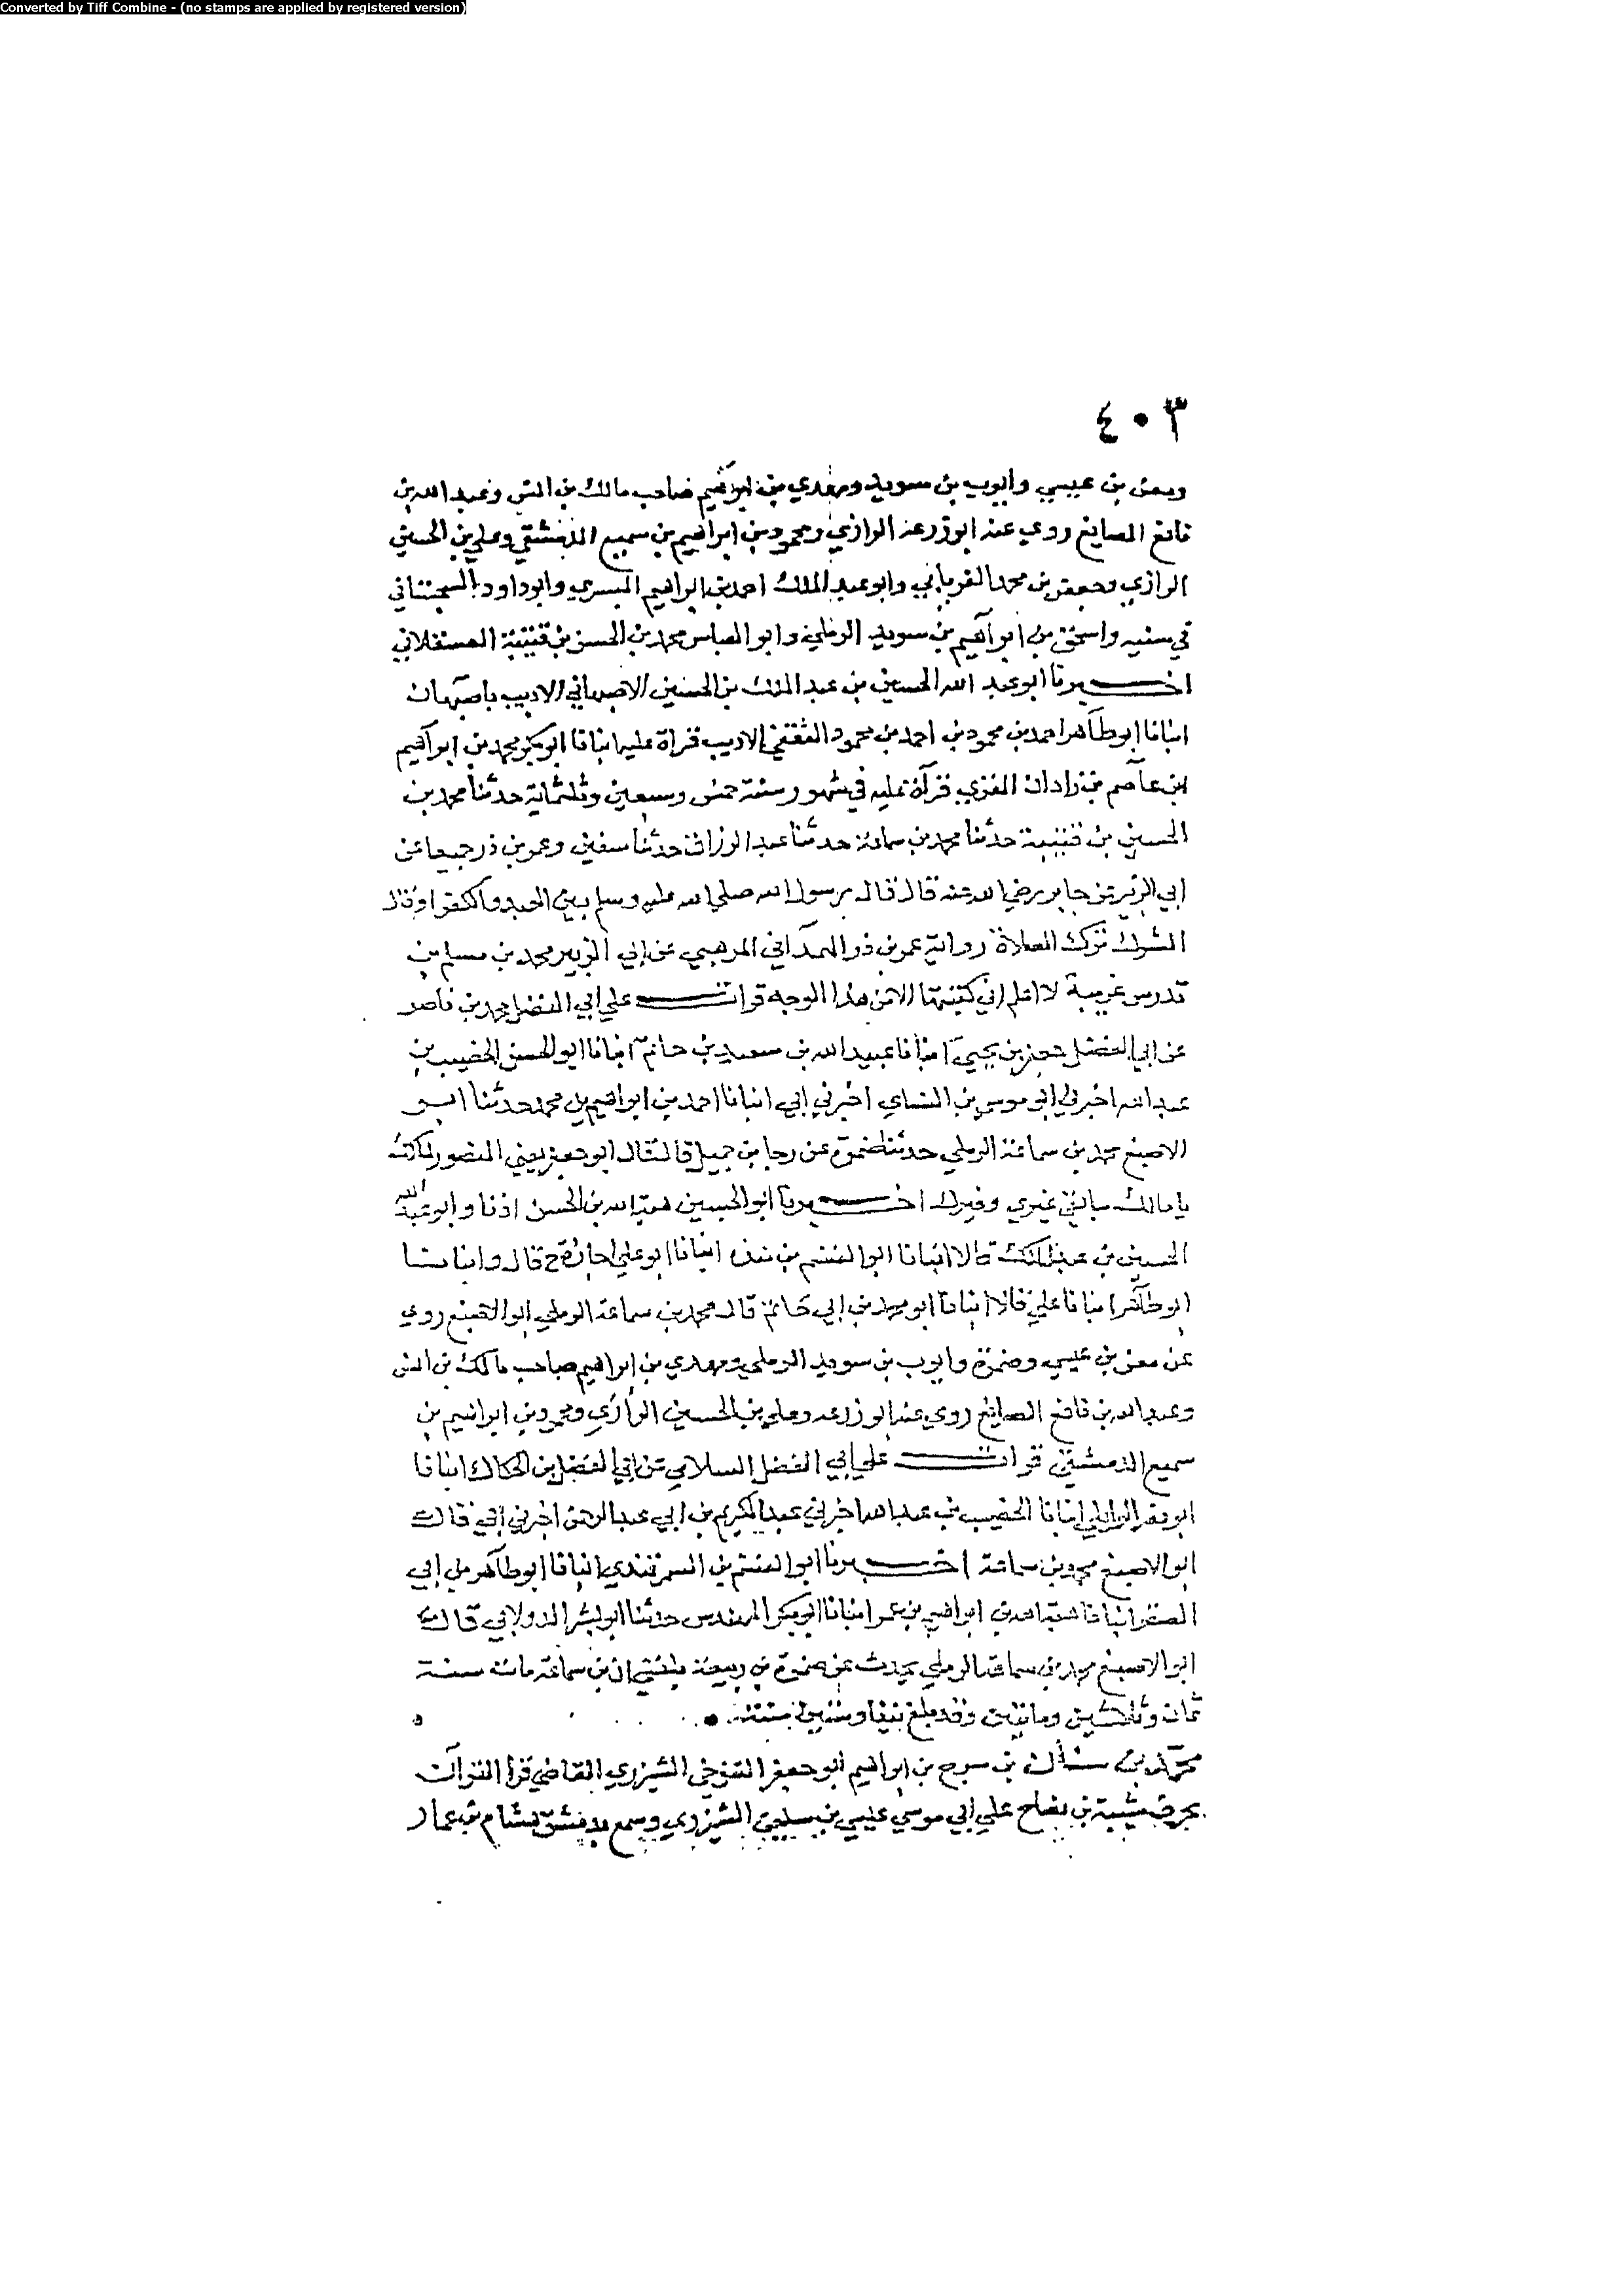 Converted by Tiff Combine - (no stamps are applied by registered version)
٤٠٣
ومعن بن عيسي وايوب بن سويد ومهدي بن ابراهيم صاحب مالك بن انس وعبد الله بن
نافع الصايغ روي عنه ابو زرعة الرازي ومحمود بن ابراهيم بن سميع الدمشقي وعلي بن الحسين
الرازي وجعفر بن محمد الفريابي وابو عبد الملك احمد بن ابراهيم البسري وابو داود السجستاني
في سننه واسحق بن ابراهيم بن سويد الرملي وابو العباس محمد بن الحسن بن قتيبة العسقلاني
اخبرنا ابو عبد الله الحسين بن عبد الملك بن الحسين الاصبهاني الاديب باصبهان
انبانا ابو طاهر احمد بن محمود بن احمد بن محمود الثقفي الاديب قراة عليه انبانا ابو بكر محمد بن ابراهيم
ابن عاصم بن زادان المقري قرآة عليه في شهور سنة خمس وسبعين وثلثماية حدثنا محمد بن
الحسين بن قتيبة حدثنا محمد بن سماعة حدثنا عبد الرزاق حدثنا سفين وعمر بن ذر جميعا عن
ابي الزبير عن جابر رضي الله عنه قال قال رسول الله صلي الله عليه وسلم بين العبد والكفر او قال
الشرك ترك الصلاة رواية عمر بن ذر الهمداني المرهبي عن ابي الزبير محمد بن مسلم بن
تدرس غريبة لا اعلم اني كتبتها الا من هذا الوجه قرات علي ابي الفضل محمد بن ناصر
عن ابي الفضل جعفر بن يحيي انبانا عبيد الله بن سعيد بن حاتم انبانا ابو الحسن الخصيب بن
عبد الله اخبرني ابو موسي بن النساي اخبرني ابي انبانا احمد بن ابراهيم بن محمد حدثنا ابو
الاصبغ محمد بن سماعة الرملي حدثنا ضمرة عن رجا بن جميل قال قال ابو جعفر يعني المنصور لمالك
يا مالك سابقي غيري وغيرك اخبرنا ابو الحسين هبة الله بن الحسن اذنا وابو عبد الله
الحسين بن عبد الملك قالا انبانا ابو القسم بن منده انبانا ابو علي اجازة ح قال وانبانا
ابو طاهر انبانا علي قالا انبانا ابو محمد بن ابي حاتم قال محمد بن سماعة الرملي ابو الاصبغ روي
عن معن بن عيسي وضمرة وايوب بن سويد الرملي ومهدي بن ابراهيم صاحب مالك بن انس
وعبد الله بن نافع الصايغ روي عنه ابو زرعه وعلي بن الحسين الرازي ومحمود بن ابراهيم بن
سميع الدمشقي قرات علي ابي الفضل السلامي عن ابي الفضل بن الحكاك انبانا
ابو نصر الوايلي انبانا الخصيب بن عبد الله اخبرني عبد الكريم بن ابي عبد الرحمن اخبرني ابي قال
ابو الاصبغ محمد بن سماعة اخبرنا ابو القسم بن السمرقندي انبانا ابو طاهر بن ابي
الصقر انبانا هبة الله بن ابراهيم بن عمر انبانا ابو بكر المهندس حدثنا ابو بشر الدولابي قال
ابو الاصبغ محمد بن سماعة الرملي يحدث عن ضمرة بن ربيعة بلغني ان بن سماعة مات سنة
ثمان وثلثين وماتين وقد بلغ نيفا وستين سنة
محمد بن سنان بن سرح بن ابراهيم ابو جعفر التنوخي الشيزري القاضي قرا القرآن
بحرف شيبة بن نصاح علي ابي موسي عيسي بن سليمن الشيزري وسمع بدمشق هشام بن عمار